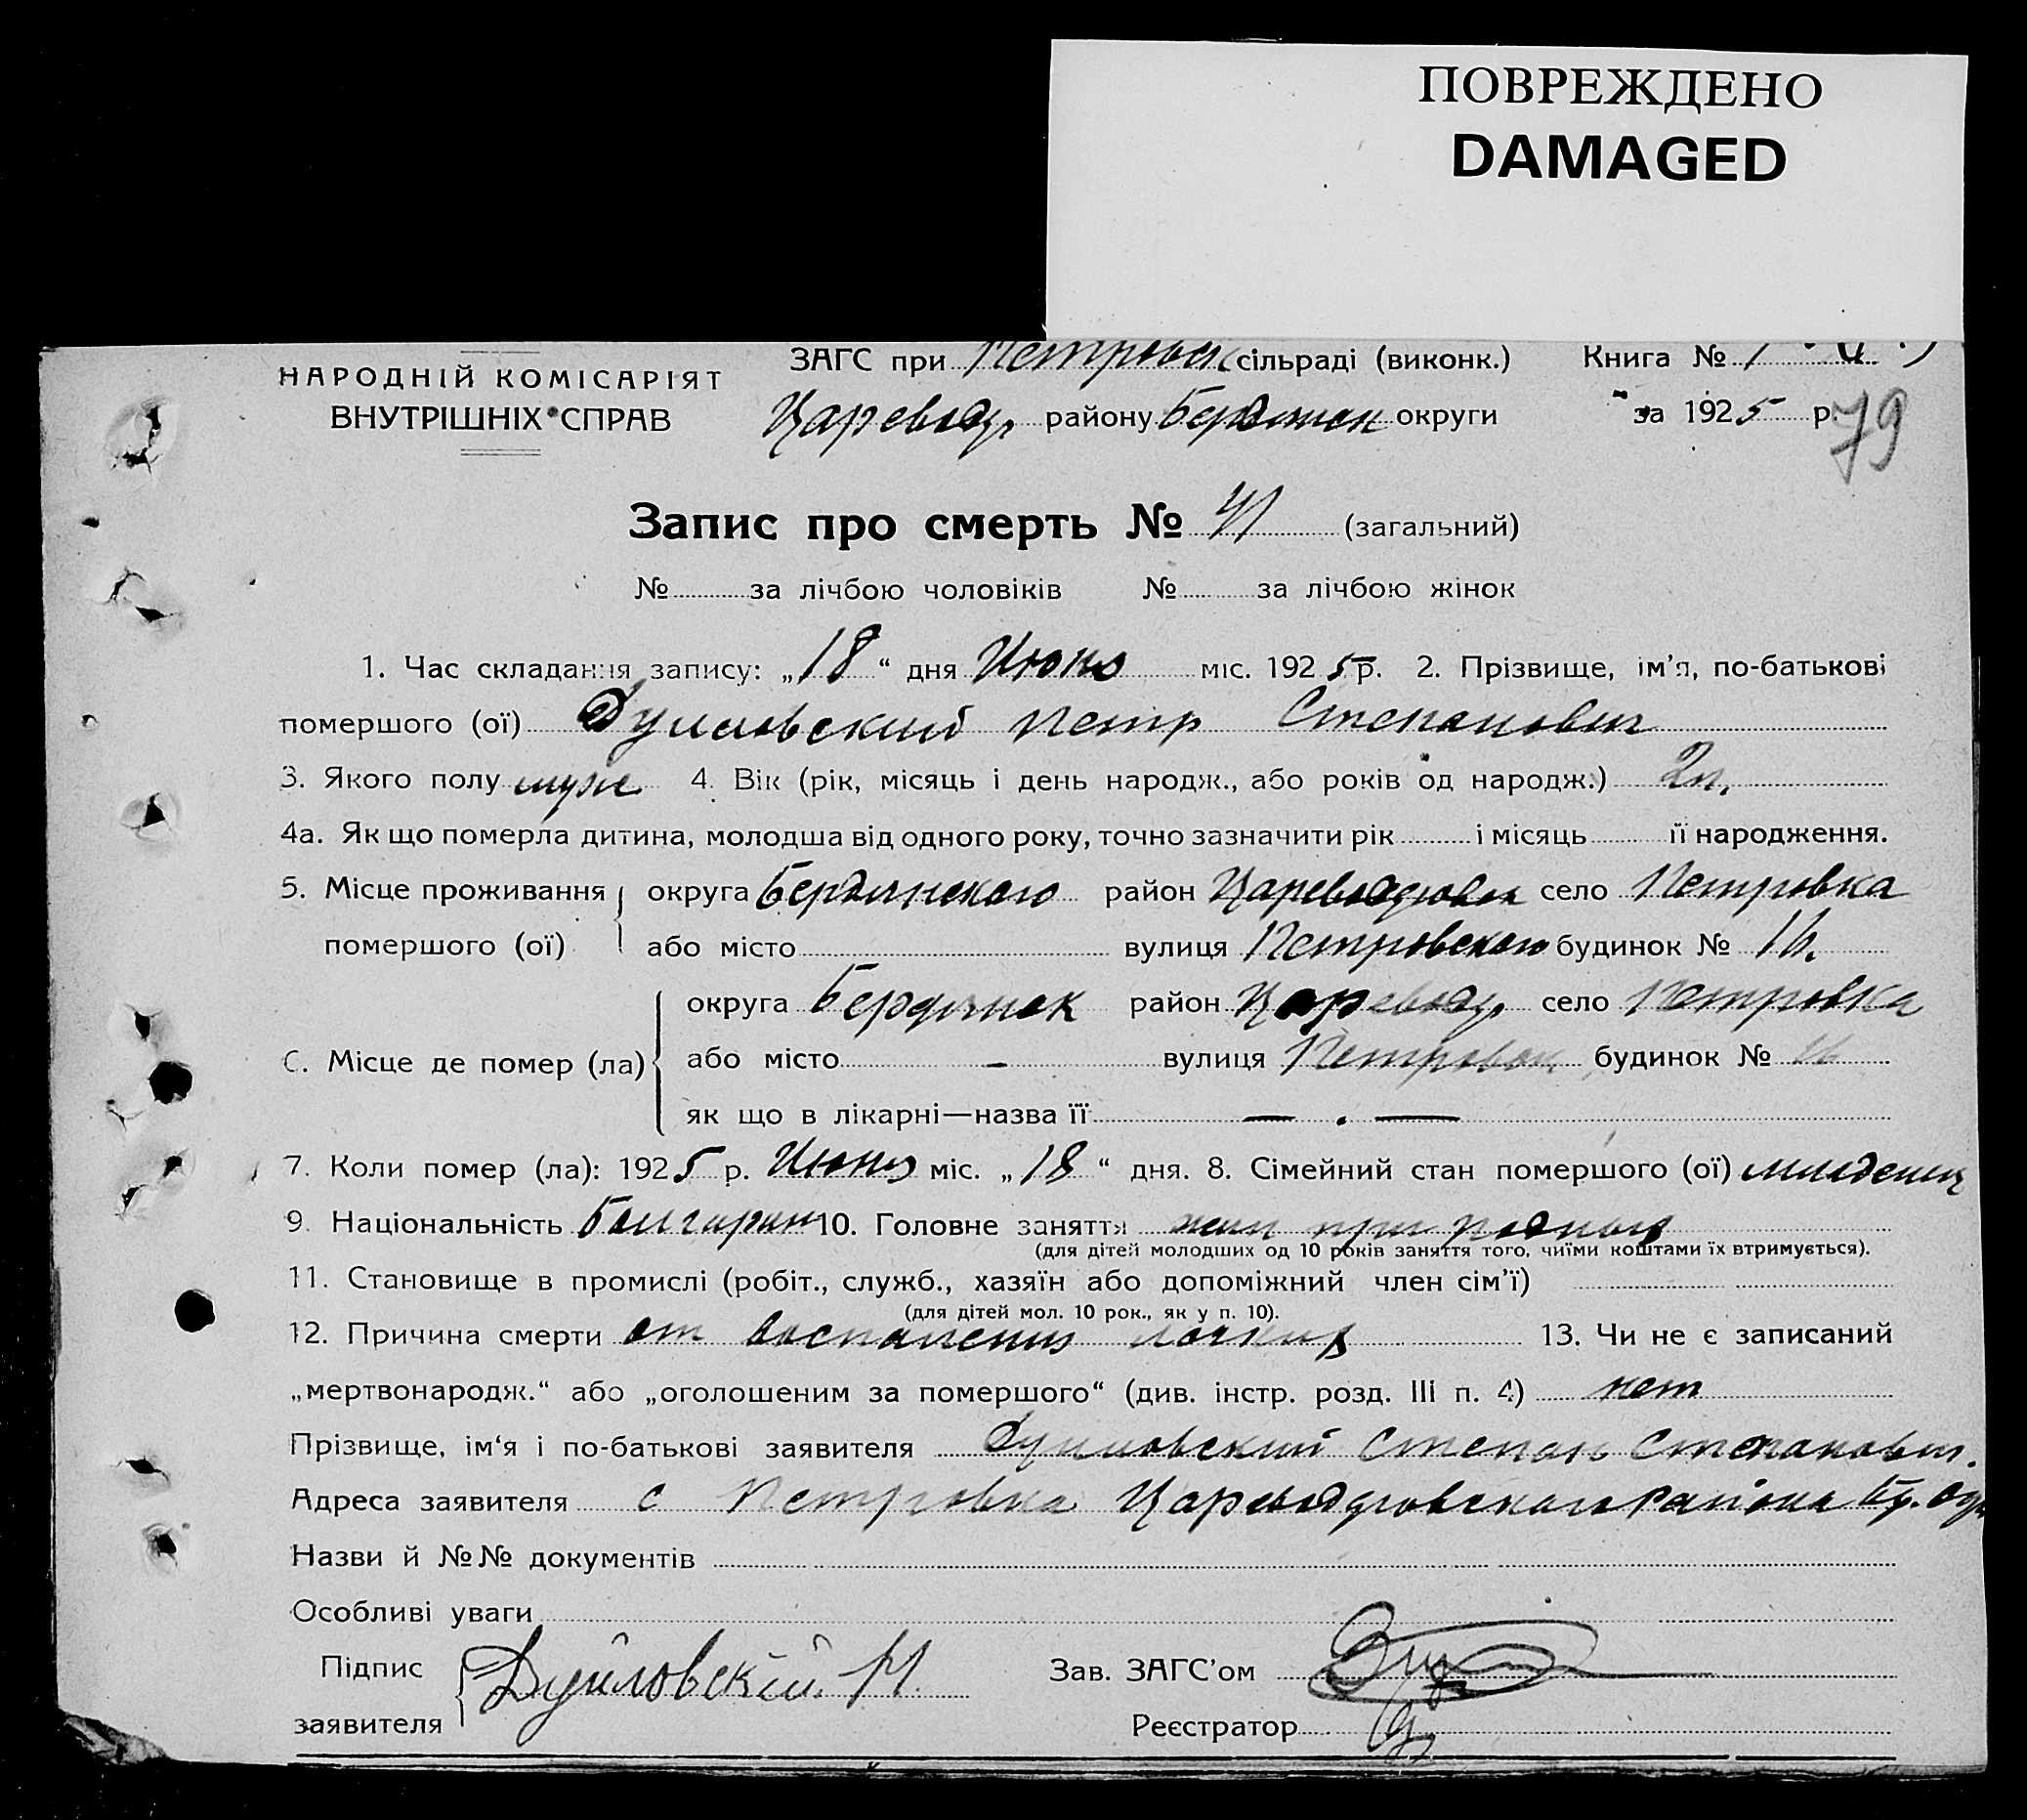 ПОВРЕЖДЕНО
DAMAGED
НАРОДНІЙ КОМІСАРІЯТ
ВНУТРІШНІХ СПРАВ
ЗАГС при Петровск сільраді (виконк.) Книга №
Царевод. району Бердянск округи за 1925 р. 79
Запис про смерть № 41 (загальний)
№ за лічбою чоловіків № за лічбою жінок
1. Час складання запису: „18“ дня Июня міс. 1925 р. 2. Прізвище, ім'я, по-батькові
помершого (ої) Дуйловский Петр Степанович
3. Якого полу муж 4. Вік (рік, місяць і день народж., або років од народж.)
4а. Як що померла дитина, молодша від одного року, точно зазначити рік і місяць її народження.
5. Місце проживання округа Бердянского район село Петровка
помершого (ої) або місто вулиця Петровского будинок №
округа Бердянск район Царевод. село Петровка
6. Місце де помер (ла) або місто — вулиця Петровск будинок №
як що в лікарні—назва її — . —
7. Коли помер (ла): 1925 р. Июня міс. „18“ дня. 8. Сімейний стан помершого (ої) младенец
9. Національність Болгарин 10. Головне заняття при родных
(для дітей молодших од 10 років заняття того, чиїми коштами їх втримується).
11. Становище в промислі (робіт., служб., хазяїн або допоміжний член сім'ї)
(для дітей мол. 10 рок., як у п. 10).
12. Причина смерти от воспаления 13. Чи не є записаний
„мертвонародж.“ або „оголошеним за помершого“ (див. інстр. розд. III п. 4) нет
Прізвище, ім'я і по-батькові заявителя Дуйловский Степан Степанович.
Адреса заявителя с Петровка района
Назви й №№ документів
Особливі уваги
Підпис
заявителя Дуйловскій
Зав. ЗАГС'ом
Реєстратор